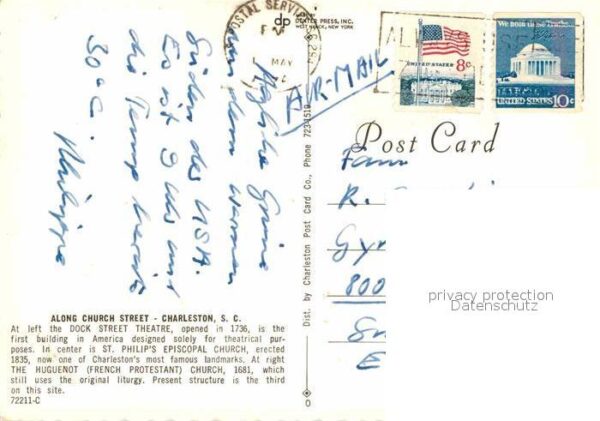 POSTAL SERVICE
MAY
dp
DEXTER PRESS, INC.
WEST NYACK, NEW YORK
UNITED STATES 8c
UNITED STATES 10c
AIR-MAIL
Post Card
Grüße
aus dem warmen
Süden der USA.
Es ist 9 Uhr und
die Temp. bereits
30°C.
Philippe
Fam
R.
Gy
800
E
Dist. by Charleston Post Card Co., Phone
privacy protection
Datenschutz
ALONG CHURCH STREET - CHARLESTON, S. C.
At left the DOCK STREET THEATRE, opened in 1736, is the
first building in America designed solely for theatrical pur-
poses. In center is ST. PHILIP'S EPISCOPAL CHURCH, erected
1835, now one of Charleston's most famous landmarks. At right
THE HUGUENOT (FRENCH PROTESTANT) CHURCH, 1681, which
still uses the original liturgy. Present structure is the third
on this site.
72211-C